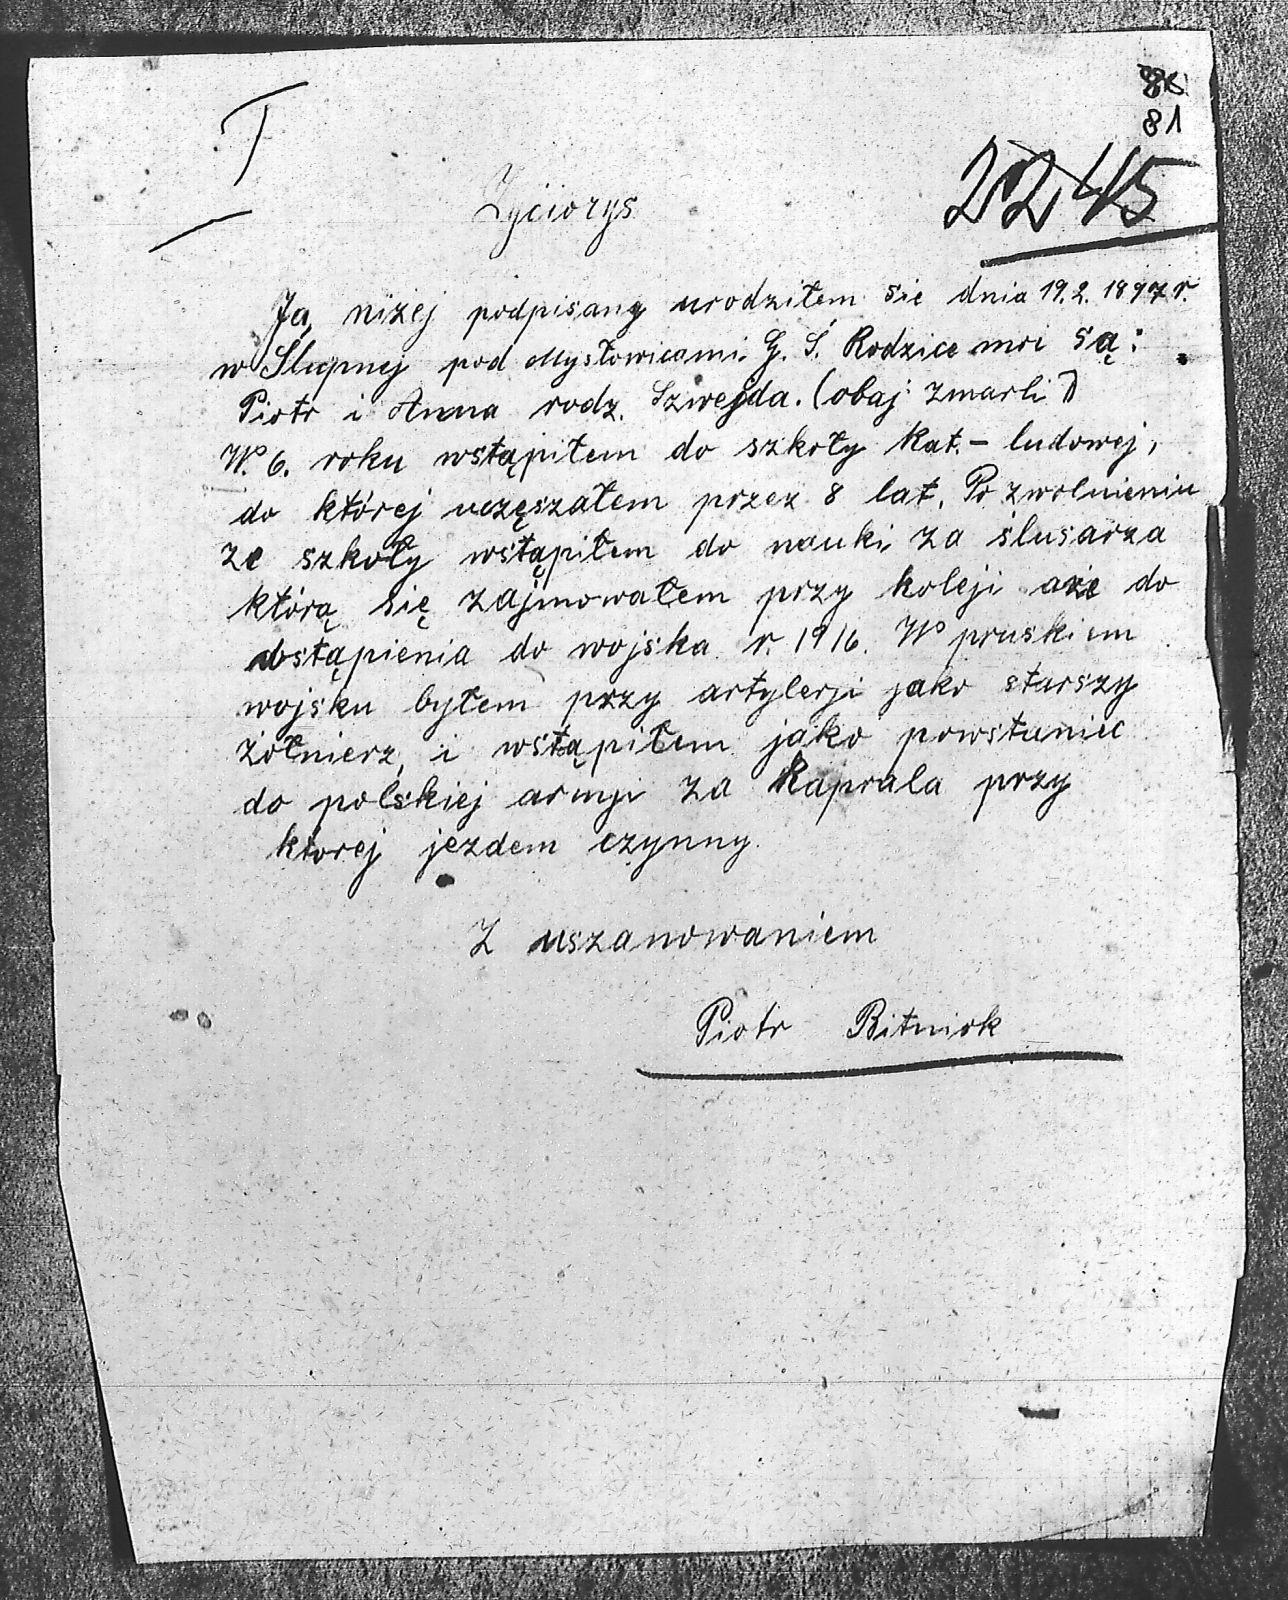 81
2245
I
Życiorys
Ja, niżej podpisany urodziłem sie dnia 19.2. 1897 r.
w Słupnej pod Mysłowicami. G. Ś. Rodzice moi są:
Piotr i Anna rodz. Szwejda. (obaj zmarli)
W. 6. roku wstąpiłem do szkoły kat. - ludowej,
do której uczęszałem przez 8 lat. Po zwolnieniu
ze szkoły wstąpiłem do nauki za ślusarza
którą się zajmowałem przy koleji aże do
wstąpienia do wojska r. 1916. W pruskiem
wojsku byłem przy artylerji jako starszy
żołnierz, i wstąpiłem jako powstaniec
do polskiej armji za kaprala przy
ktorej jezdem czynny.
Z uszanowaniem
Piotr Bitniok